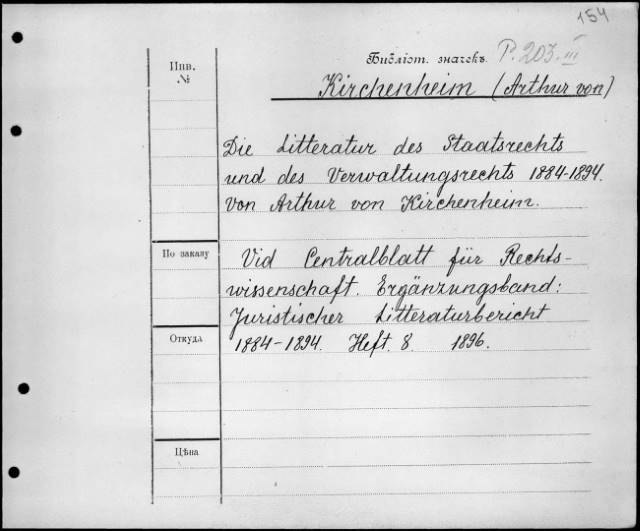 154
Библіот. значекъ P. 203. III
Инв.
№
Kirchenheim (Arthur von)
Die Litteratur des Staatsrechts
und des Verwaltungsrechts 1884-1894.
Von Arthur von Kirchenheim.
По заказу
Vid Centralblatt für Rechts-
wissenschaft. Ergänzungsband:
Juristischer Litteraturbericht
Откуда
1884-1894. Heft. 8 1896.
Цѣна